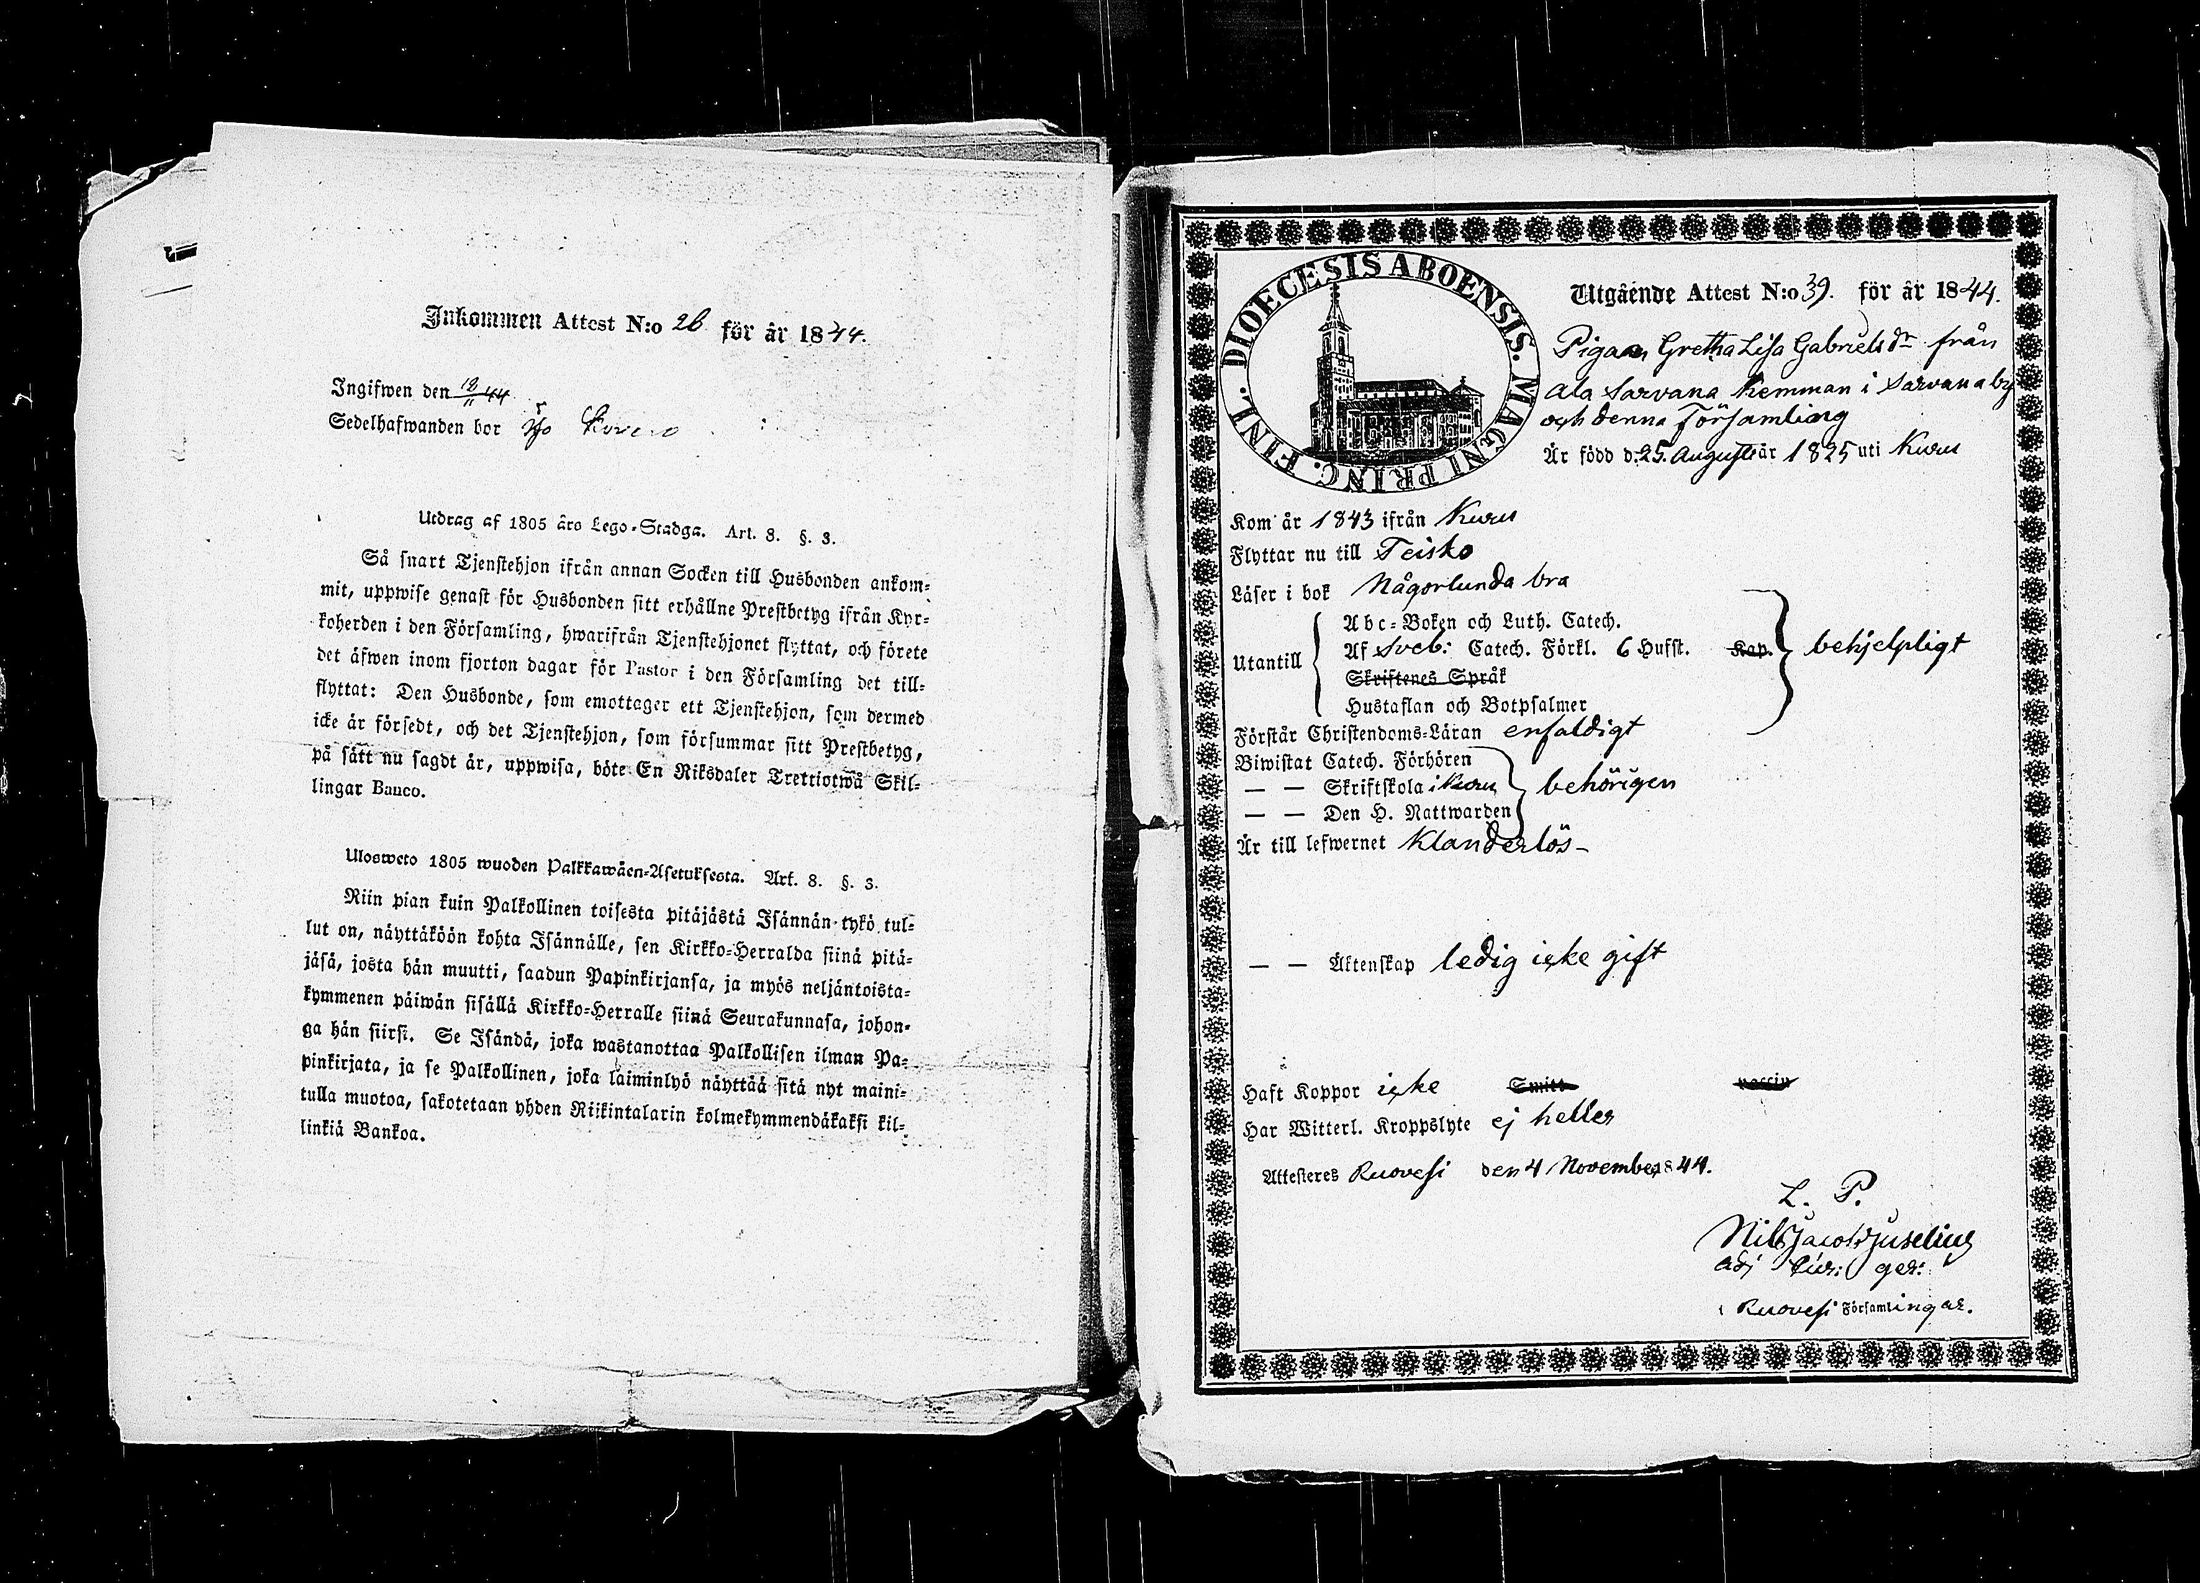 Inkommen Attest N:o 26 för år 1844.
Ingifwen den 12/11 44
Sedelhafwanden bor
Utdrag af 1805 års Lego-Stadga. Art. 8. §. 3.
Så snart Tjenstehjon ifrån annan Socken till Husbonden ankom-
mit, uppwise genast för Husbonden sitt erhållne Prestbetyg ifrån Kyr-
koherden i den Församling, hwarifrån Tjenstehjonet flyttat, och förete
det äfwen inom fjorton dagar för Pastor i den Församling det till-
flyttat: Den Husbonde, som emottager ett Tjenstehjon, som dermed
icke är försedt, och det Tjenstehjon, som försummar sitt Prestbetyg,
på sätt nu sagdt är, uppwisa, böte En Riksdaler Trettiotwå Skil-
lingar Banco.
Ulosweto 1805 wuoden Palkkawäen-Asetuksesta. Art. 8. §. 3.
Niin pian kuin Palkollinen toisesta pitäjästä Isännän tykö tul-
lut on, näyttäköön kohta Isännälle, sen Kirkko-Herralda siinä pitä-
jäsä, josta hän muutti, saadun Papinkirjansa, ja myös neljäntoista-
kymmenen päiwän sisällä Kirkko-Herralle siinä Seurakunnasa, johon-
ga hän siirsi. Se Isändä, joka wastanottaa Palkollisen ilman Pa-
pinkirjata, ja se Palkollinen, joka laiminlyö näyttää sitä nyt maini-
tulla muotoa, sakotetaan yhden Riikintalarin kolmekymmendäkaksi kil-
linkiä Bankoa.
DIOECESIS ABOENSIS. MAGNI PRINC. FINL.
Utgående Attest N:o 39. för år 1844.
Pigan Gretha Lisa Gabrielsdr från
Ala Sarvana Hemman i Sarvana by
och denna Församling
Är född d. 25. Augusti år 1825 uti Kuru
Kom år 1843 ifrån Kuru
Flyttar nu till Teisko
Läser i bok Någorlunda bra
Utantill
Abc-Boken och Luth. Catech.
Af Sveb: Catech. Förkl. 6 Hufst. Kap. behjelpligt
Skriftenes Språk
Hustaflan och Botpsalmer
Förstår Christendoms-Läran enfaldigt
Biwistat Catech. Förhören
— — Skriftskola i Kuru behörigen
— — Den H. Nattwarden
Är till lefwernet Klanderlös-
— — Äktenskap ledig icke gift
Haft Koppor icke Smitt vaccin
Har Witterl. Kroppslyte ej heller
Attesteres Ruovesi den 4 November 1844.
L. P.
Nils Jacob Juselius
adj
i Ruovesi Församlingar.